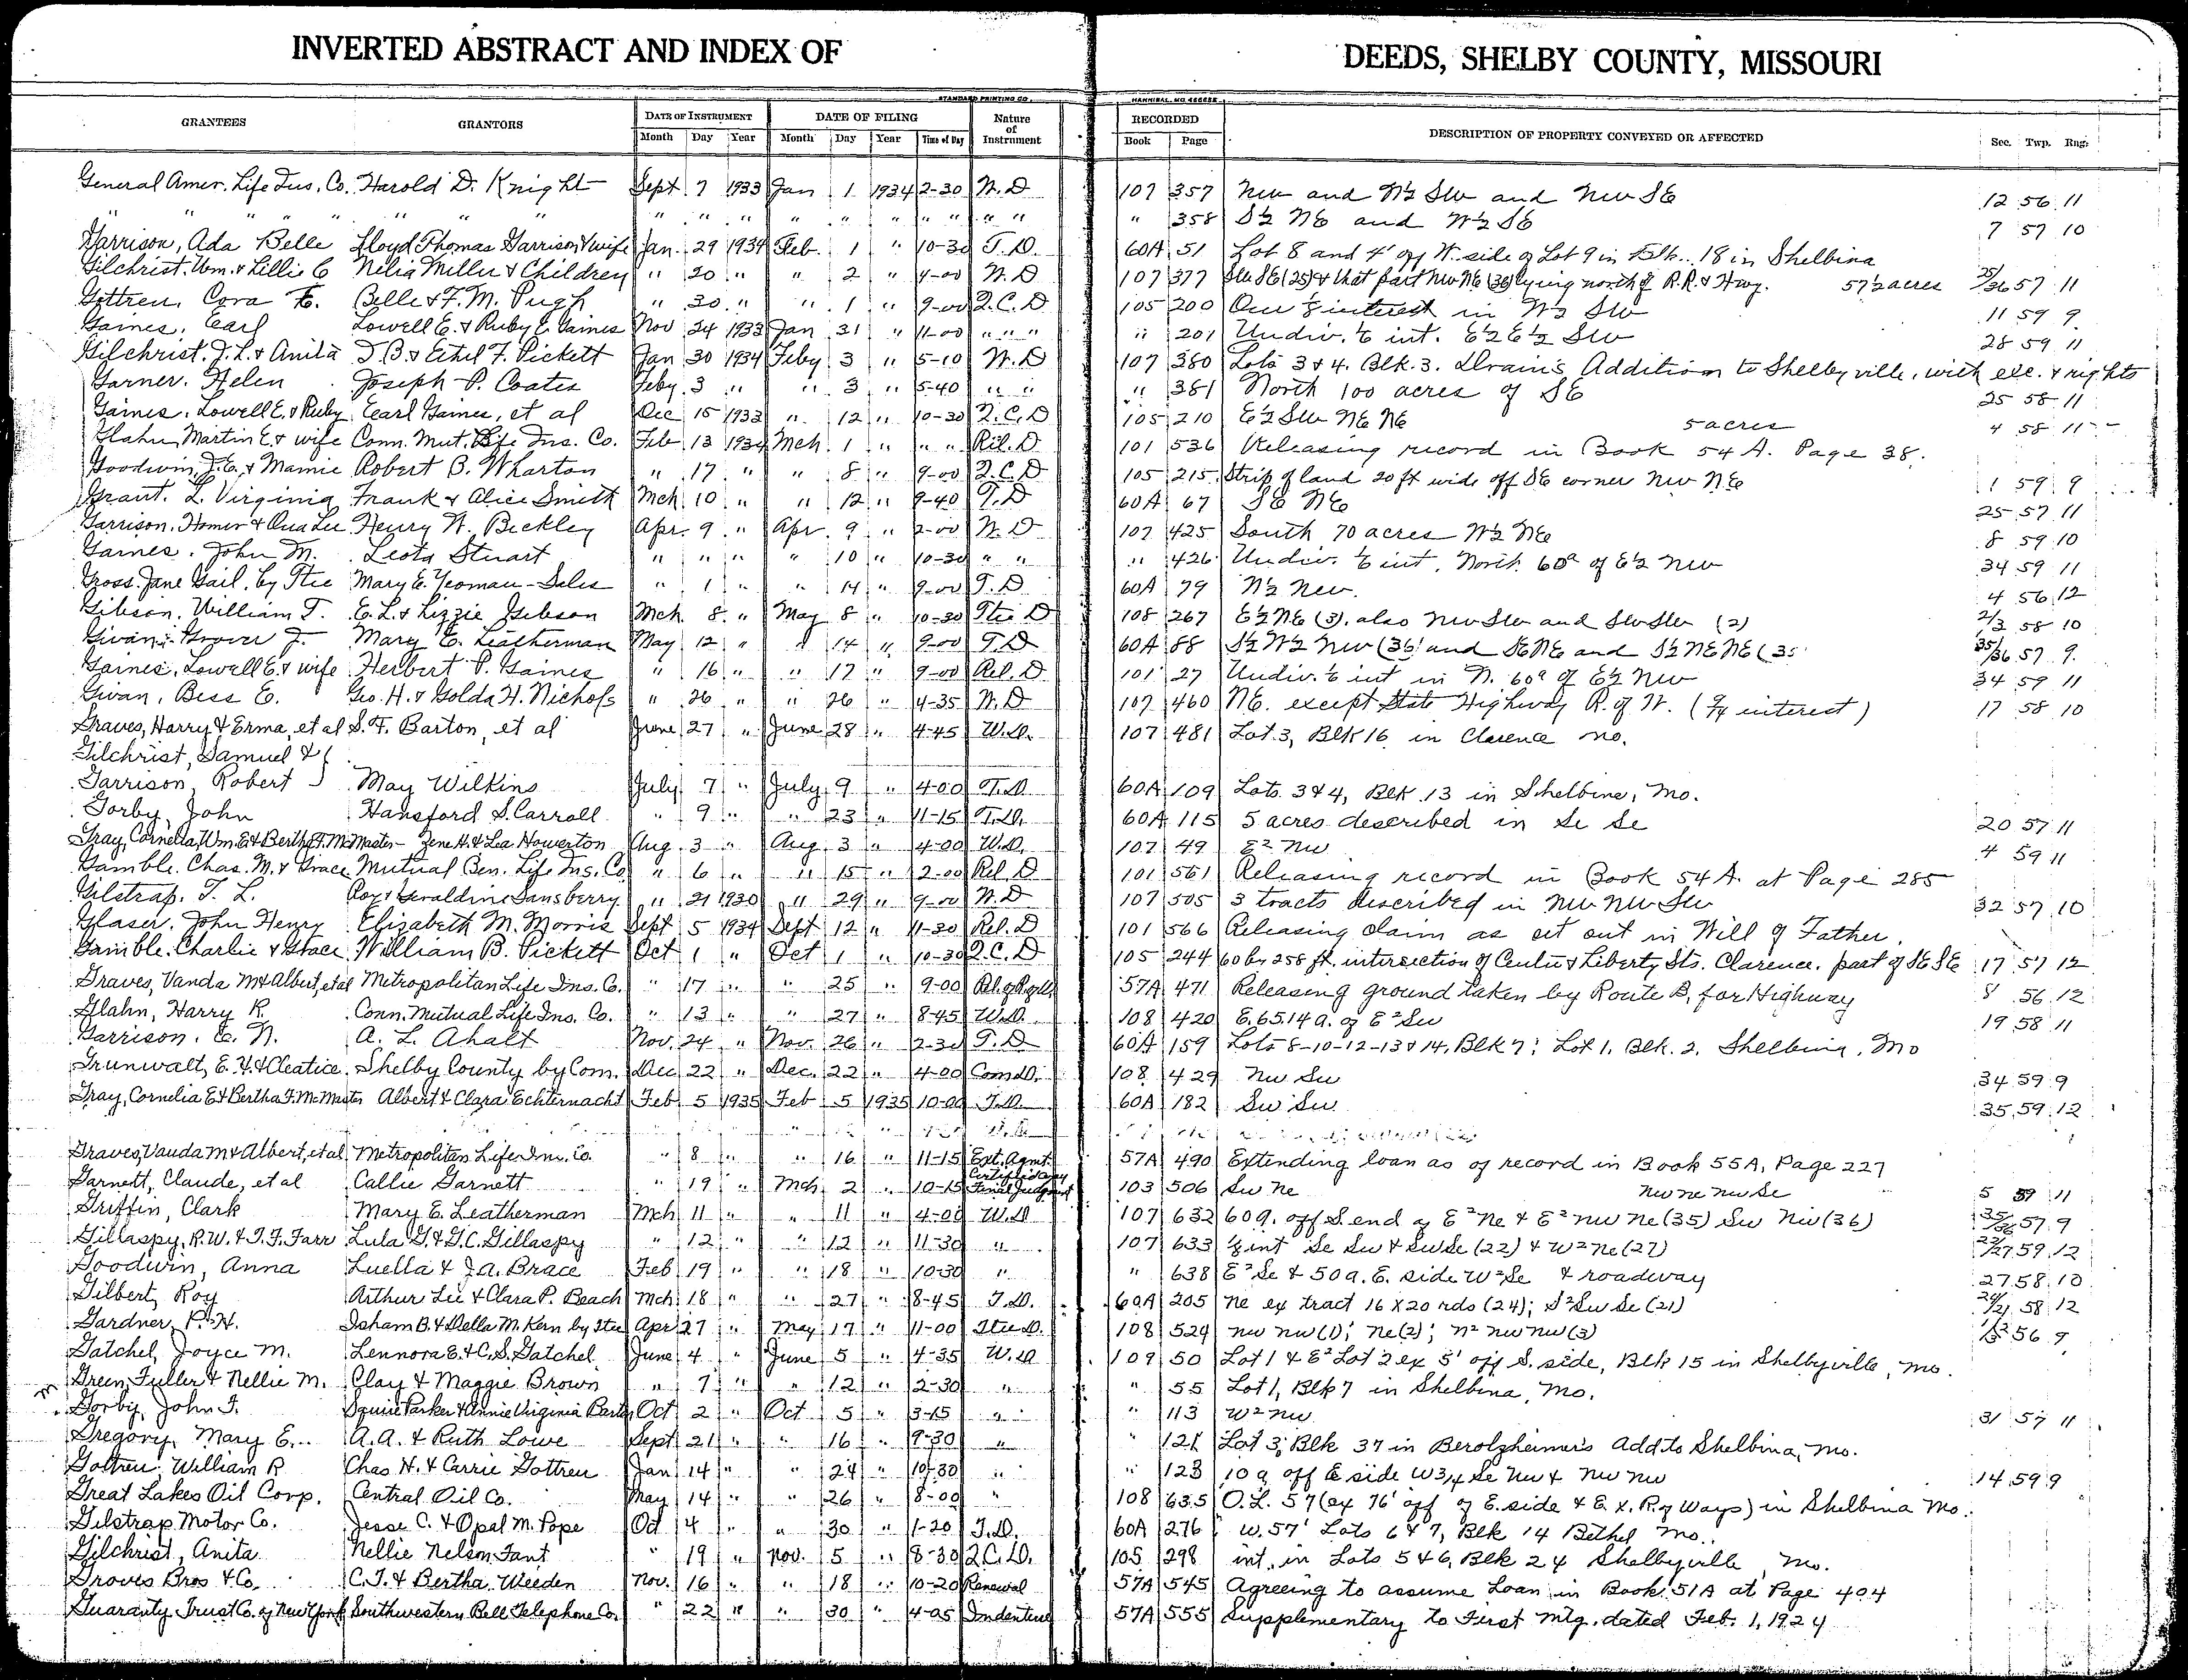 INVERTED ABSTRACT AND INDEX OF DEEDS, SHELBY COUNTY, MISSOURI
STANDARD PRINTING CO HANNIBAL, MO.
GRANTEES GRANTORS DATE OF INSTRUMENT DATE OF FILING Nature of Instrument RECORDED DESCRIPTION OF PROPERTY CONVEYED OR AFFECTED Sec. Twp. Rng.
Month Day Year Month Day Year Time of Day Book Page
General Amer. Life Ins. Co. Harold D. Knight Sept 7 1933 Jan 1 1934 2-30 W.D 107 357 NW and W½ SW and NW SE 12 56 11
" " " " " " " " " " " " " " " " " " " 358 S½ NE and W½ SE 7 57 10
Garrison, Ada Belle Lloyd Thomas Garrison & wife Jan. 29 1934 Feb. 1 " 10-30 T.D. 60A 51 Lot 8 and 4' off W. side of Lot 9 in Blk. 18 in Shelbina
Gilchrist, Wm. & Lillie C Nelia Miller & Children " 20 " " 2 " 4-00 W.D 107 377 SW SE (25) & that part NW NE (36) lying north of R.R. & Hwy. 57½ acres 25/36 57 11
Gottren, Cora E. Belle & F. M. Pugh " 30 " " 1 " 9-00 Q.C.D 105 200 interest in W½ SW 11 59 9
Gaines, Earl Lowell E. & Ruby E. Gaines Nov 24 1933 Jan 31 " 11-00 " " " " 201 Undiv. 1/6 int. E½ E½ SW 28 59 11
Gilchrist, J. L. & Anita J. B. & Ethel F. Pickett Jan 30 1934 Feby 3 " 5-10 W.D 107 380 Lots 3 & 4. Blk. 3. Drain's Addition to Shelbyville, with & rights
Garner. Helen Joseph P. Coates Feby. 3 " " 3 " 5-40 " " " 381 North 100 acres of SE 25 58 11
Gaines, Lowell E. & Ruby Earl Gaines, et al Dec 15 1933 " 12 " 10-30 Q.C.D 105 210 E½ SW NE NE 5 acres 4 58 11
Glahn, Martin E. & wife Conn. Mut. Life Ins. Co. Feb 13 1934 Mch. 1 " " " Rel. D 101 536 Releasing record in Book 54 A. Page 38.
Goodwin, J. E. & Mamie Robert B. Wharton " 17 " " 8 " 9-00 Q.C.D 105 215 Strip of land 20 ft wide off SE corner NW NE 1 59 9
Grant. L. Virginia Frank & Alice Smith Mch. 10 " " 12 " 9-40 T.D 60A 67 SE NE 25 57 11
Garrison, Homer & Ona Lee Henry W. Bickley Apr. 9 " Apr. 9 " 2-00 W.D 107 425 South 70 acres W½ NE 8 59 10
Gaines, John M. Leota Stuart " " " " 10 " 10-30 " " " 426 Undiv. 1/6 int. North 60a of E½ NW 34 59 11
Gross, Jane Gail, by Tree Mary E. Yeoman-Sales " 1 " " 14 " 9-00 T.D 60A 79 N½ NW. 4 56 12
Gibson, William T. E. L. & Lizzie Gibson Mch. 8 " May 8 " 10-30 Tree D 108 267 E½ NE (3), also NW SW and SW SW (2) 2/3 58 10
Givan, Grover J. Mary E. Leatherman May 12 " " 14 " 9-00 T.D 60A 88 S½ W½ NW (36) and SE NE and S½ NE NE (35 35/36 57 9.
Gaines, Lowell E. & wife Herbert P. Gaines " 16 " " 17 " 9-00 Rel. D 101 27 Undiv. 1/6 int in N. 60a of E½ NW 34 59 11
Givan, Bess E. Geo. H. & Golda H. Nichols " 26 " " 26 " 4-35 W.D 107 460 NE. except State Highway R. of W. ( interest) 17 58 10
Graves, Harry & Erma, et al S. F. Barton, et al June 27 " June 28 " 4-45 W.D. 107 481 Lot 3, Blk 16 in Clarence Mo.
Gilchrist, Samuel &
Garrison, Robert May Wilkins July 7 " July 9 " 4-00 T.D. 60A 109 Lots 3 & 4, Blk. 13 in Shelbina, Mo.
Gorby, John Hansford S. Carroll " 9 " " 23 " 11-15 T.D. 60A 115 5 acres described in Se Se 20 57 11
Gray, Cornelia, Wm. E. & Bertha F. McMaster - Zene H. & Lea Howerton Aug. 3 " Aug. 3 " 4-00 W.D. 107 49 E² NW 4 59 11
Gamble, Chas. M. & Grace Mutual Ben. Life Ins. Co. " 6 " " 15 " 2-00 Rel. D 101 561 Releasing record in Book 54 A. at Page 285
Gilstrap. T. L. Roy & Geraldine Sansberry " 21 1930 " 29 " 9-00 W.D 107 505 3 tracts described in NW NW SW 32 57 10
Glaser, John Henry Elizabeth M. Morris Sept 5 1934 Sept 12 " 11-30 Rel. D 101 566 Releasing claim as set out in Will of Father.
Gamble. Charlie & Grace William B. Pickett Oct 1 " Oct 1 " 10-30 Q.C.D 105 244 60 by 258 ft. intersection of Center & Liberty Sts. Clarence. part of SE SE 17 57 12
Graves, Vanda M & Albert, et al Metropolitan Life Ins. Co. " 17 " " 25 " 9-00 57A 471 Releasing ground taken by Route B, for Highway 8 56 12
Glahn, Harry R. Conn. Mutual Life Ins. Co. " 13 " " 27 " 8-45 W.D. 108 420 E. 65.14 a. of E² SW 19 58 11
Garrison. E. N. A. L. Ahalt Nov. 24 " Nov. 26 " 2-30 T.D 60A 159 Lots 8-10-12-13 & 14, Blk 7; Lot 1, Blk. 2, Shelbina, Mo
Grunwalt, E. Y. & Cleatice Shelby County by Com. Dec 22 " Dec. 22 " 4-00 Com D. 108 429 NW SW 34 59 9
Gray, Cornelia E & Bertha F. McMaster Albert & Clara Echternacht Feb 5 1935 Feb 5 1935 10-00 T.D. 60A 182 SW SW 35 59 12
Graves, Vauda M & Albert, et al Metropolitan Life Ins. Co. " 8 " " 16 " 11-15 Ext. Agmt. 57A 490 Extending loan as of record in Book 55A, Page 227
Garnett, Claude, et al Callie Garnett " 19 " Mch 2 " 10-15 Final Judgment 103 506 SW NE NW NE NW SE 5 59 11
Griffin, Clark Mary E. Leatherman Mch 11 " " 11 " 4-00 W.D 107 632 60 a. off S. end of E² NE & E² NW NE (35) SW NW (36) 35/36 57 9
Gillaspy, R. W. & T. F. Farr Lula G. & G. C. Gillaspy " 12 " " 12 " 11-30 " 107 633 int Se Sw & Sw Se (22) & W² NE (27) 22/27 59 12
Goodwin, Anna Luella & J. A. Brace Feb 19 " " 18 " 10-30 " " 638 E² Se & 50 a. E. side W² Se & roadway 27 58 10
Gilbert, Roy Arthur Lee & Clara P. Beach Mch 18 " " 27 " 8-45 T.D. 60A 205 NE ex tract 16 X 20 rds (24); S² SW SE (21) 24/21 58 12
Gardner, P. H. Isham B. & Della M. Kern by Stee Apr 27 " May 17 " 11-00 Stee D. 108 524 NW NW (1); NE (2); N² NW NW (3) 56 9
Gatchel, Joyce M. Lennora E. & C. S. Gatchel June 4 " June 5 " 4-35 W.D 109 50 Lot 1 & E² Lot 2 ex 5' off S. side, Blk 15 in Shelbyville, Mo.
Green, Fuller & Nellie M. Clay & Maggie Brown " 7 " " 12 " 2-30 " " 55 Lot 1, Blk 7 in Shelbina, Mo.
Gorby, John F. Squire Parker & Annie Virginia Oct 2 " Oct 5 " 3-15 " " 113 W² NW 31 57 11
Gregory, Mary E. A. A. & Ruth Lowe Sept 21 " " 16 " 9-30 " " 121 Lot 3, Blk 37 in Berolzheimer's Add to Shelbina, Mo.
Gottren, William R Chas H. & Carrie Gottren Jan 14 " " 24 " 10-30 " " 123 10 a off E side W 3/4 Se NW & NW NW 14 59 9
Great Lakes Oil Corp. Central Oil Co. May 14 " " 26 " 8-00 " 108 635 O.L. 57 (ex 76' off of E. side & E. X. R. of Ways) in Shelbina Mo.
Gilstrap Motor Co. Jesse C. & Opal M. Pope Oct 4 " " 30 " 1-20 T.D. 60A 276 W. 57' Lots 6 & 7, Blk 14 Bethel Mo.
Gilchrist, Anita Nellie Nelson Fant " 19 " Nov. 5 " 8-30 Q.C.D. 105 298 int. in Lots 5 & 6, Blk 24 Shelbyville, Mo.
Groves Bros & Co. C. T. & Bertha Weeden Nov. 16 " " 18 " 10-20 Renewal 57A 545 Agreeing to assume Loan in Book 51A at Page 404
Guaranty Trust Co. of New York Southwestern Bell Telephone Co. " 22 " " 30 " 4-05 Indenture 57A 555 Supplementary to First Mtg. dated Feb. 1, 1924